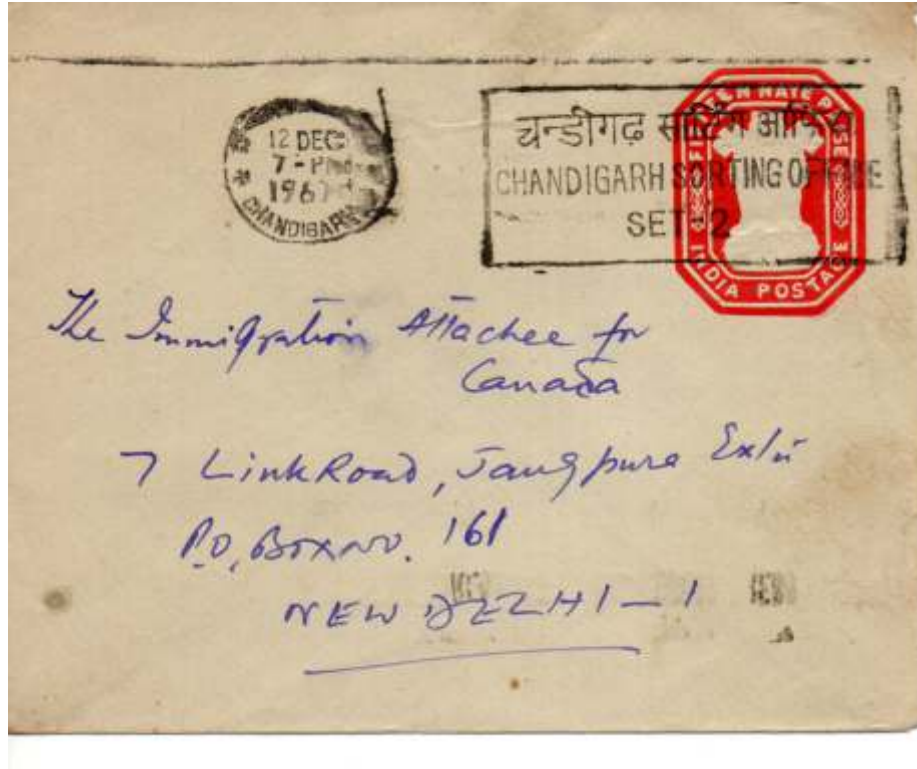 12 DEC
7-PM
1967
CHANDIGARH
चन्डीगढ़ सार्टिंग आफिस
CHANDIGARH SORTING OFFICE
SET-2
FIFTEEN NAYE PAISE
INDIA POSTAGE
The Immigration Attachee for
Canada
7 Link Road, Jangpura Extn
P.O, Box no. 161
NEW DELHI-1